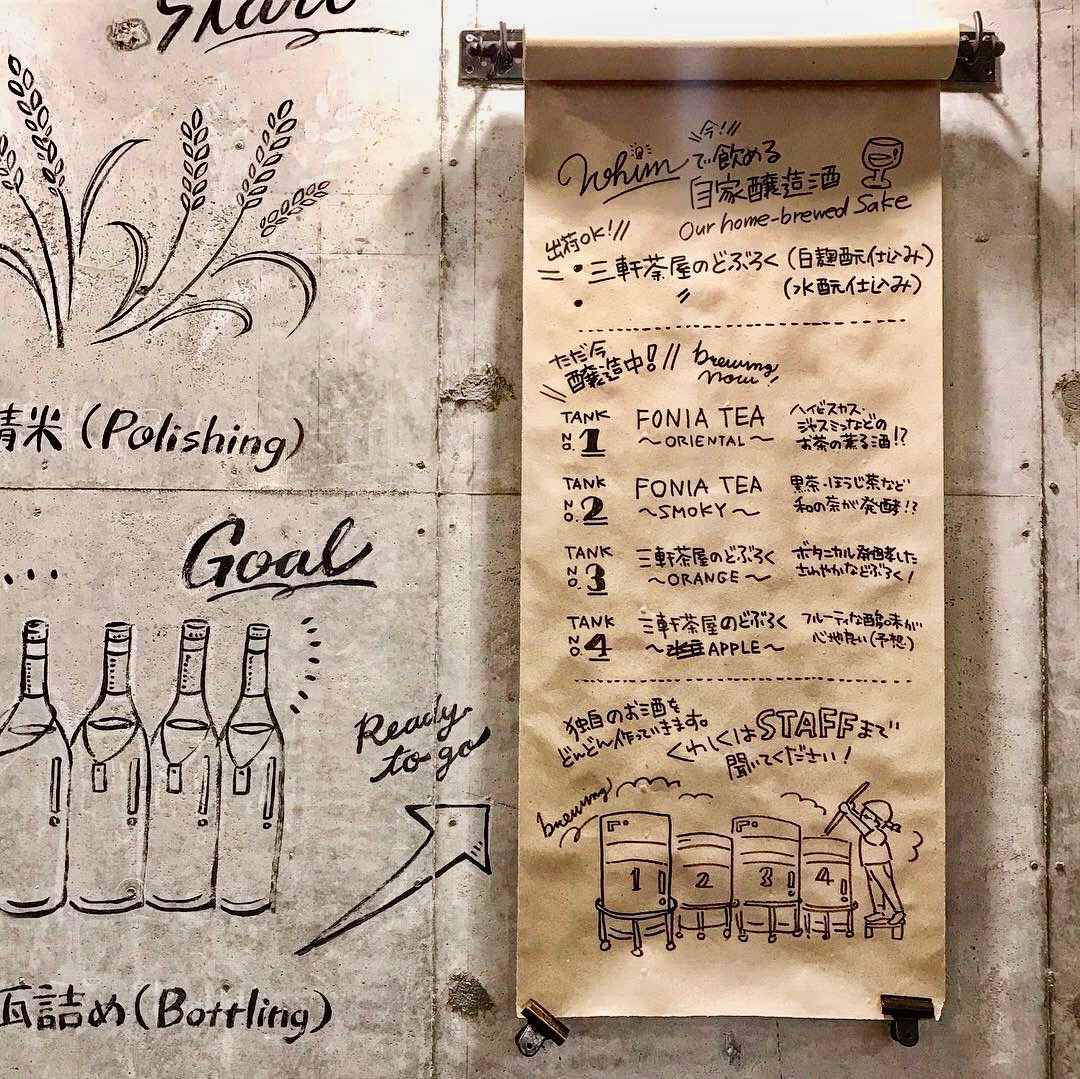 Start
精米 (Polishing)
...
Goal
Ready
to go
瓦詰め (Bottling)
今!
Whimで飲める
自家醸造酒
Our home-brewed Sake
出荷OK!
・三軒茶屋のどぶろく (白麹酛仕込み)
・ 〃 (水酛仕込み)
ただ今
醸造中! brewing
now!
TANK
NO.1
FONIA TEA
〜ORIENTAL〜
ハイビスカス・
ジャスミンなどの
お茶の薫る酒!?
TANK
NO.2
FONIA TEA
〜SMOKY〜
黒茶・ほうじ茶など
和の茶が発酵!?
TANK
NO.3
三軒茶屋のどぶろく
〜ORANGE〜
ボタニカル発酵した
さわやかなどぶろく!
TANK
NO.4
三軒茶屋のどぶろく
〜APPLE〜
フルーティな酸味が
心地良い(予想)
独自のお酒を
どんどん作っていきます。
くわしくはSTAFFまで
聞いてください!
brewing
1 2 3 4